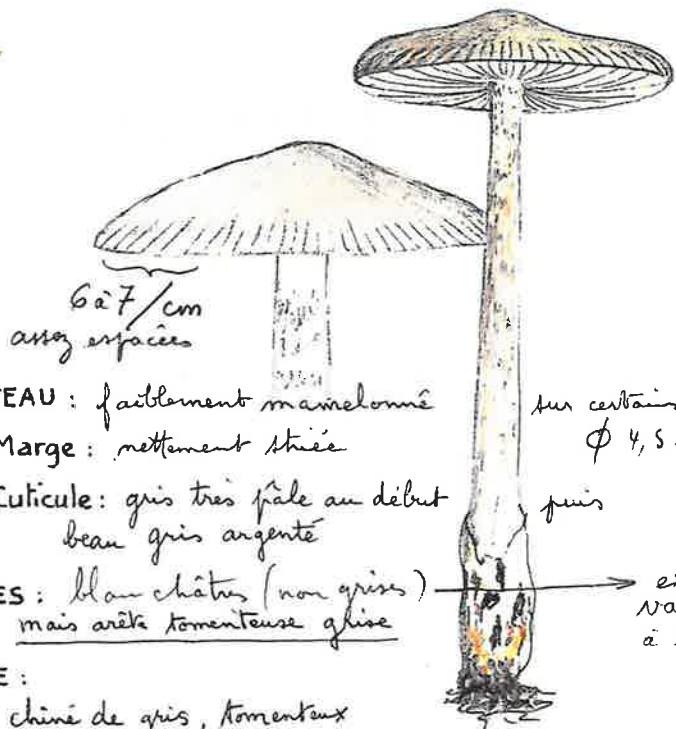 6 à 7 / cm
assez espacées
TEAU : faiblement mamelonné sur certains
Marge : nettement striée Φ 4,5
Cuticule : gris très pâle au début puis
beau gris argenté
ES : blanchâtres (non grises)
mais arête tomenteuse grise
à
E :
chiné de gris, tomenteux